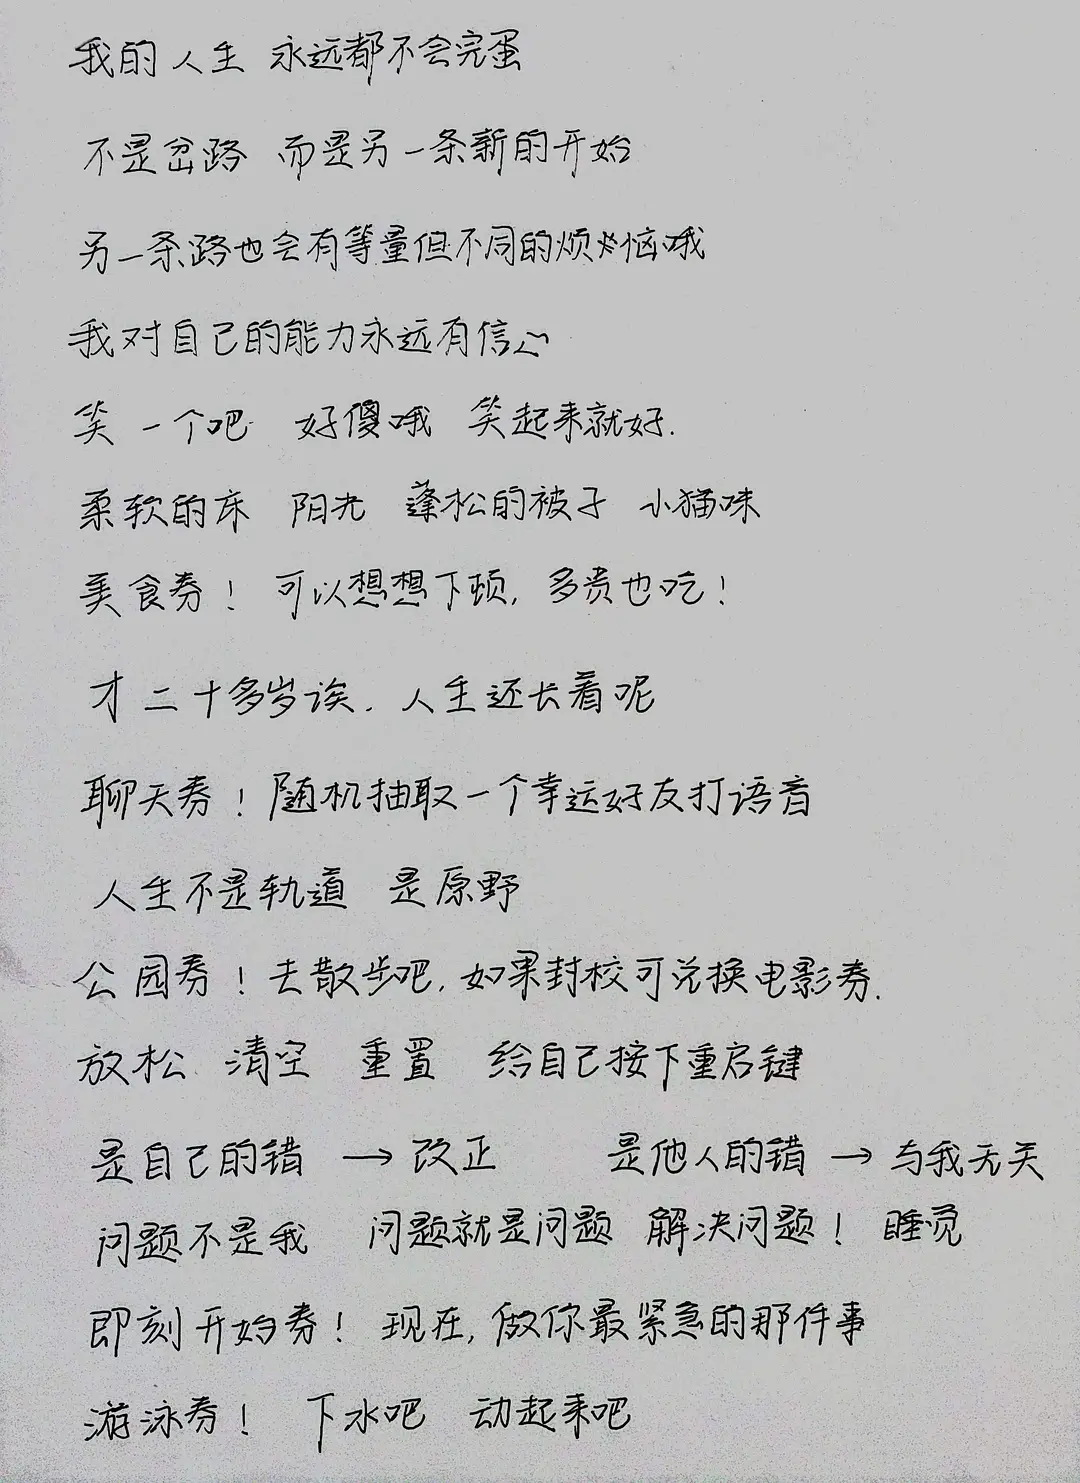 我的人生 永远都不会完蛋
不是岔路 而是另一条新的开始
另一条路也会有等量但不同的烦恼哦
我对自己的能力永远有信心
笑一个吧 好傻哦 笑起来就好.
柔软的床 阳光 蓬松的被子 小猫咪
美食券! 可以想想下顿, 多贵也吃!
才二十多岁诶. 人生还长着呢
聊天券! 随机抽取一个幸运好友打语音
人生不是轨道 是原野
公园券! 去散步吧, 如果封校可兑换电影券.
放松 清空 重置 给自己按下重启键
是自己的错 → 改正 是他人的错 → 与我无关
问题不是我 问题就是问题 解决问题! 睡觉
即刻开始券! 现在, 做你最紧急的那件事
游泳券! 下水吧 动起来吧